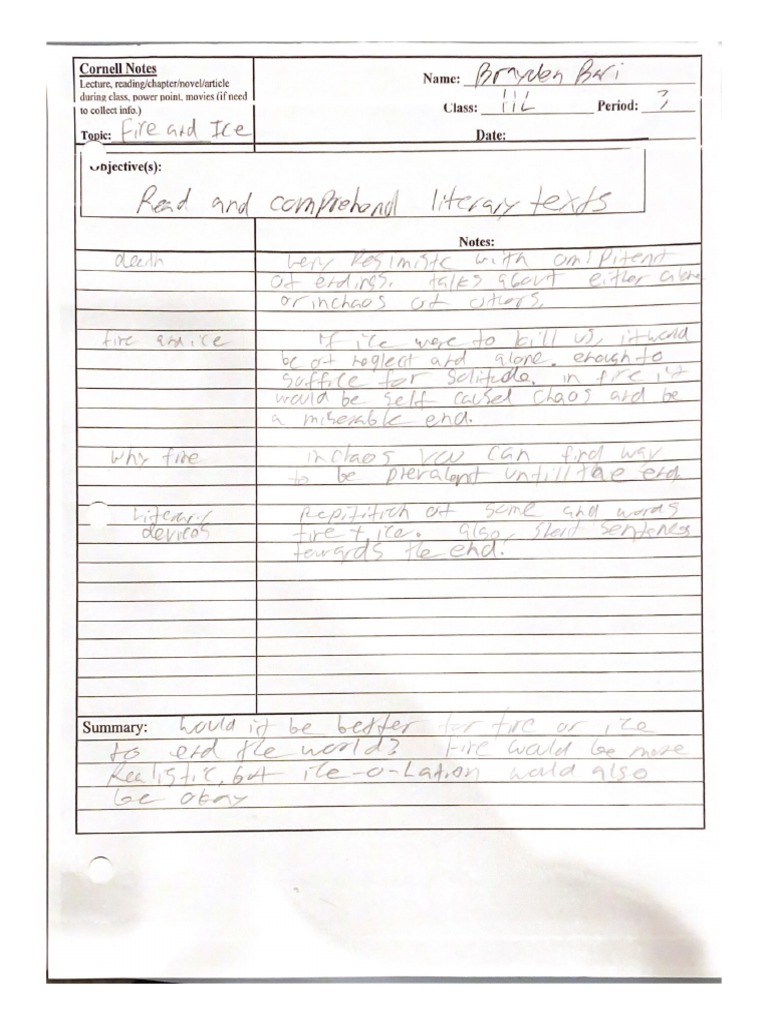 Cornell Notes
Lecture, reading/chapter/novel/article
during class, power point, movies (if need
to collect info.)
Topic: Fire and Ice
Name: Brayden Bari
Class:
Period: 3
Date:
Objective(s):
Read and comprehend literary texts
Notes:
death
very Pesimistc with omipitent
of endings. talks about either alone
or in chaos of others.
fire and ice
If ice were to kill us, it would
be of neglect and alone. enough to
suffice for solitude. in fire it
would be self caused chaos and be
a miserable end.
why fire
in chaos you can find way
to be prevalent untill the end
Literary
devices
Repitition of some and words
fire + ice. also, short sentences
towards the end.
Summary: Would it be better for fire or ice
to end the world? Fire would be more
Realistic, but ice-o-Lation would also
be okay